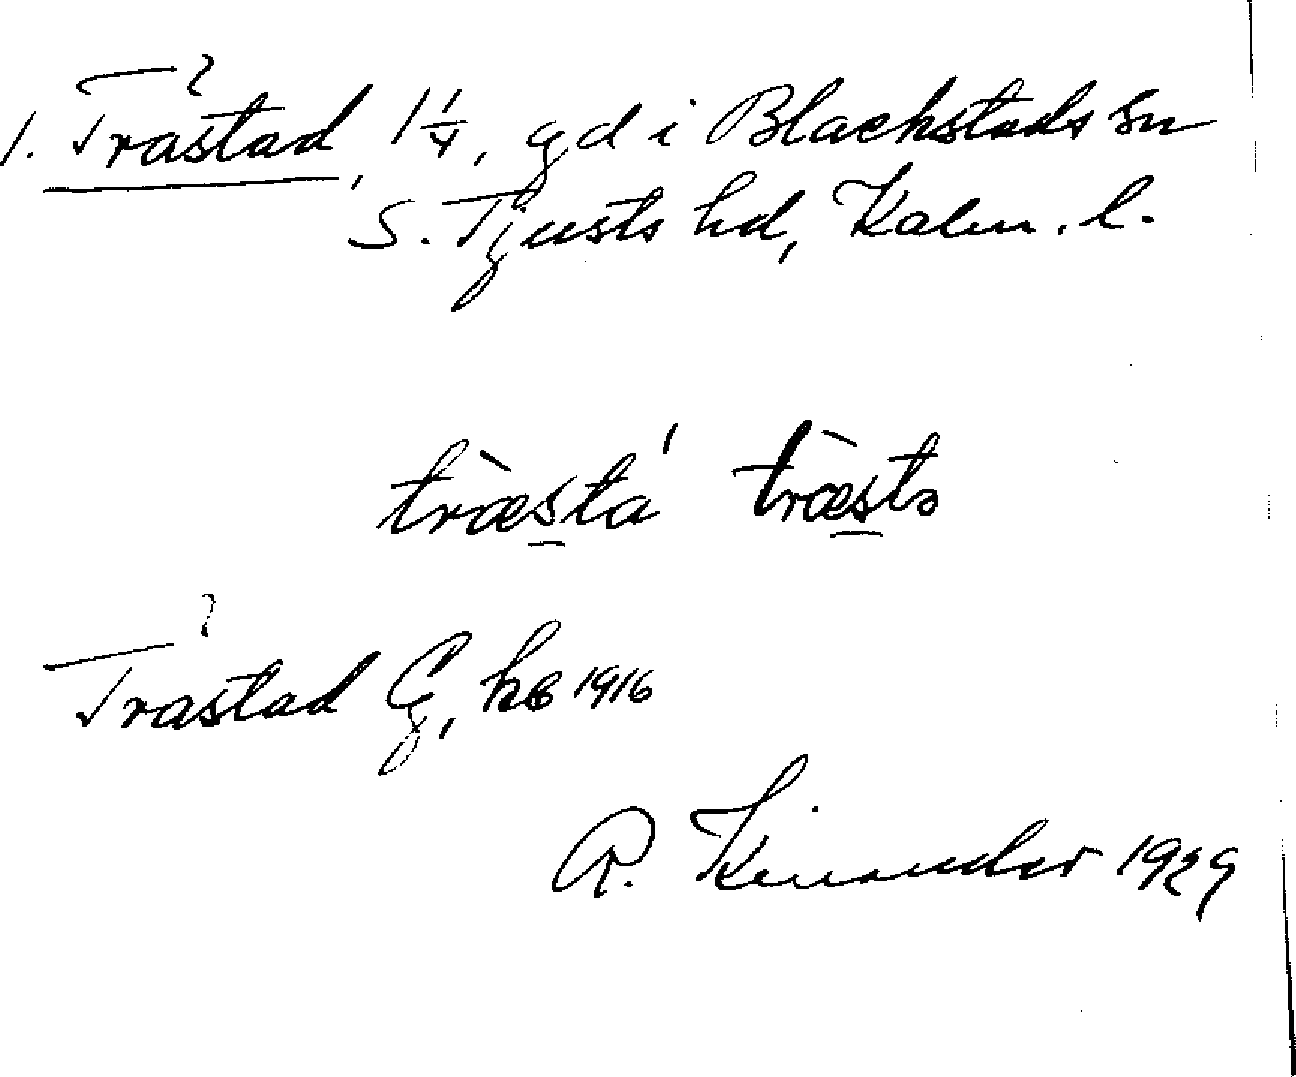 1. Tråstad, 1 1/4, gd i Blackstads sn
S. Tjusts hd, Kalm. l.
træ̀stá træ̀stə
Tråstad Eg, hb 1916
R. Kinander 1929